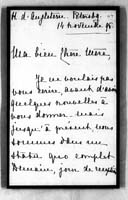 H. d'Angleterre. Petersbg
14 novembre
Ma bien chère Mère,
Je ne voulais pas
vous écrire, avant d'avoir
quelques nouvelles à
vous donner. mais
jusqu'à présent, nous
sommes dans un
statu quo complet
Demain, jour de